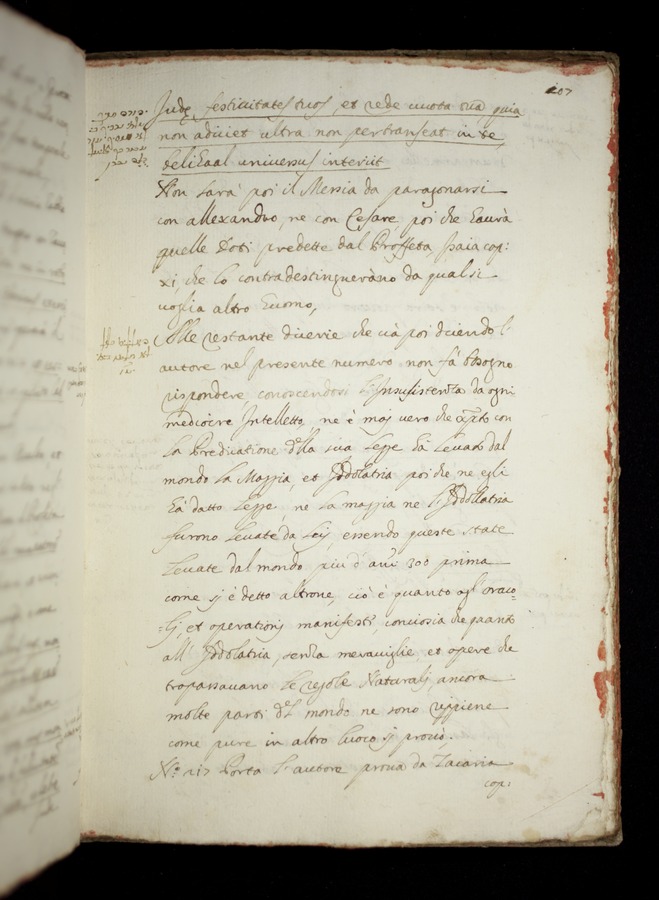 107
Jude festiuitates tuos, et rede vuota tua quia
non adiiciet ultra non pertranseat in te,
beliEaal universus interiit
Non sarà poi il Messia da paragonarsi
con allexandro, ne con Cesare poi che Eaurà
quelle Doti predette dal Proffeta, Isaia cap:
xi, che lo contradestingueràno da qual si
voglia altro Euomo,
Alle restante dicerie che uà poi diciendo l'
autore nel presente numero non fà bisogno
rispondere conoscendosi l'Insusistenza da ogni
mediocre Intelletto, ne è maj vero che xpto con
la Predicatione della sua leppe Eà levato dal
mondo la Maggia, et Iddolatria poi che ne egli
Eà datto Legge, ne la maggia ne l'Iddollatria
furono levate da Luj, essendo queste state
levate dal mondo piu d'ani 300 prima
come sj è detto altroue, ciò è quanto agl'oraco-
-lj, et operationj manifesti, conciosia che quanto
all'Iddolatria, senza meraviglie, et opere che
trapassauano le regole Naturalj, ancora
molte parti del mondo ne sono rippiene
come pure in altro luoco sj prouò.
N.o 217 Porta l'autore proua da Zacaria
cap: